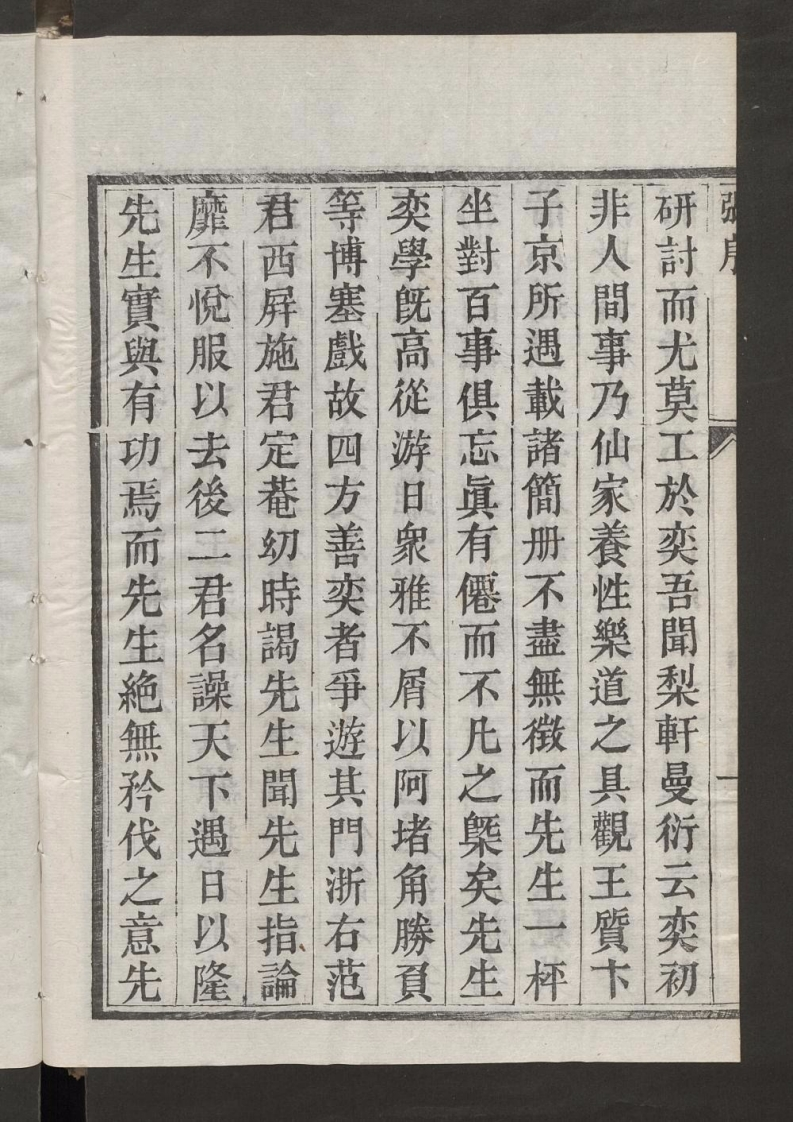 張序
一
研討而尤莫工於奕吾聞梨軒曼衍云奕初
非人間事乃仙家養性樂道之具觀王質卞
子京所遇載諸簡册不盡無徵而先生一枰
坐對百事俱忘眞有僊而不凡之槩矣先生
奕學旣高從游日衆雅不屑以阿堵角勝負
等博塞戲故四方善奕者爭遊其門浙右范
君西屛施君定菴幼時謁先生聞先生指論
靡不悅服以去後二君名譟天下遇日以隆
先生實與有功焉而先生絶無矜伐之意先